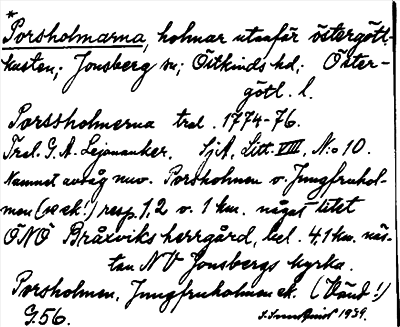 *
Porsholmarna, holmar utanför östergötl.
kusten; Jonsberg sn; Östkinds hd; Öster-
götl. l.
Porssholmerna trol. 1774-76.
Trol. G. A. Lejonanker, SjA, Litt. VIII, N:o 10.
Namnet avsåg nuv. Porsholmen o. Jungfruhol-
men (se ek!) resp. 1,2 o. 1 km. något litet
ÖNÖ Bråxviks herrgård, bel. 4,1 km. näs-
tan NV Jonsbergs kyrka.
Porsholmen, Jungfruholmen ek. (Vänd!)
G. 56. 1939.